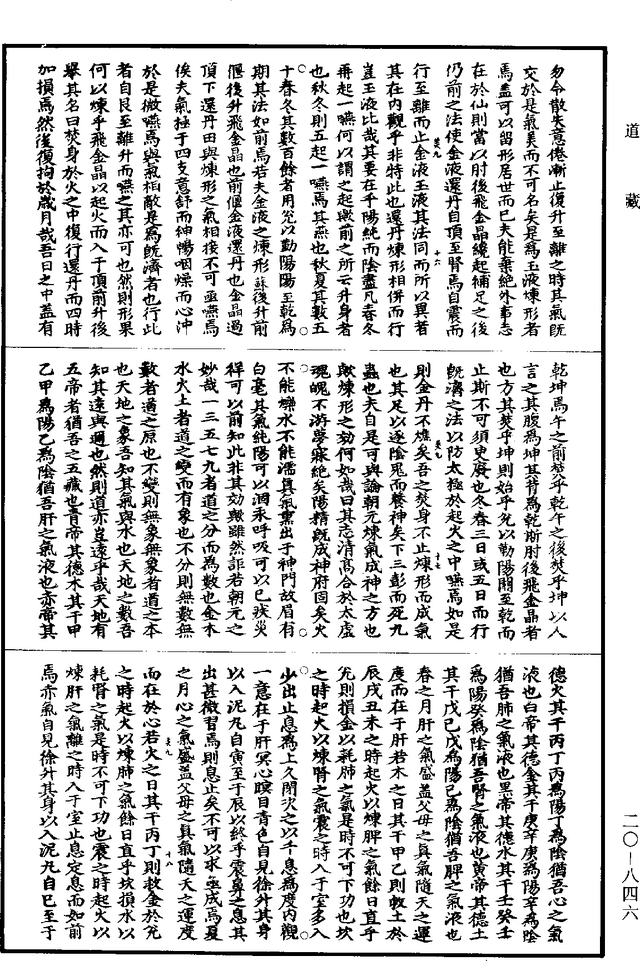 道藏
勿令散失意倦漸止復升至離之時其氣既
交於是氣美而不可名矣是爲玉液煉形者
焉蓋可以留形居世而已夫能棄絶外事志
在於仙則當以肘後飛金晶纔起補足之後
仍前之法使金液還丹自頂至腎焉自震而
行至離而止金液玉液其法同而所以異者
其在内觀乎非特此也還丹煉形相併而行
豈玉液比哉其要在乎陽純而陰盡凡春冬
再起一嚥何以謂之起歟前之所云升身者
也秋冬則五起一嚥焉其嚥也秋夏其數五
十春冬其數百餘者用兊以勤陽陽至乾爲
期其法如前焉若夫金液之煉形蘇後升前
偃後升飛金晶也前偃金液還丹也金晶過
頂下還丹田與煉形之氣相接不可亟嚥焉
俟夫氣極于四支意舒而神暢咽燥而心沖
於是微嚥焉與氣相敵是爲既濟者也行此
者自艮至離升而嚥之其亦可也然則形果
何以煉乎飛金晶以起火而入于頂前升後
舉其名曰焚身於火之中復行還丹而四時
加損焉然後復拘於歲月哉吾日之中蓋有
乾坤焉午之前焚乎乾午之後焚乎坤以人
言之其腹爲坤其背爲乾斯肘後飛金晶者
也方其焚乎坤則始乎兊以勒陽關至乾而
止斯不可須臾廢也冬春三日或五日而行
既濟之法以防太極於起火之中嚥焉如是
則金丹不燋矣吾之焚身不止煉形而成氣
也其足以逐陰鬼而養神矣下三彭而死九
蟲也夫自是可與論朝元煉氣成神之方也
歟煉形之効何如哉曰其志清高合於太虚
魂魄不游夢寐絶矣陽精既成神府固矣火
不能爍水不能濡真氣熏出于神門故眉有
白毫其氣純陽可以涸汞呼吸可以已疾災
祥可以前知此非其効歟雖然詐若朝元之
妙哉一三五七九者道之分而爲數也金木
水火土者道之變而有象也不分則無數無
數者道之原也不變則無象無象者道之本
也天地之象吾知其氣與水也天地之數吾
知其遠與邇也然則道亦豈遠乎哉天地有
五帝者猶吾之五藏也青帝其德木其干甲
乙甲爲陽乙爲陰猶吾肝之氣液也赤帝其
德火其干丙丁丙爲陽丁爲陰猶吾心之氣
液也白帝其德金其干庚辛庚爲陽辛爲陰
猶吾肺之氣液也黑帝其德水其干壬癸壬
爲陽癸爲陰猶吾腎之氣液也黄帝其德土
其干戊己戊爲陽己爲陰猶吾脾之氣液也
春之月肝之氣盛蓋父母之真氣隨天之運
度而在于肝若木之日其干甲乙則救土於
辰戌丑未之時起火以煉脾之氣餘日直乎
兊則損金以耗肺之氣是時不可下功也坎
之時起火以煉腎之氣震之時入于室多入
少出止息爲上久閉次之以千息爲度内觀
一意在于肝冥心瞑目青色自見徐升其身
以入泥丸自寅至于辰以終乎震鼻之息其
出甚微習焉則息止矣不可以求亟成焉夏
之月心之氣盛蓋父母之真氣隨天之運度
而在於心若火之日其干丙丁則救金於兊
之時起火以煉肺之氣餘日直乎坎損水以
耗腎之氣是時不可下功也震之時起火以
煉肝之氣離之時入于室止息定息而如前
焉赤氣自見徐升其身以入泥丸自巳至于
二〇—八四六